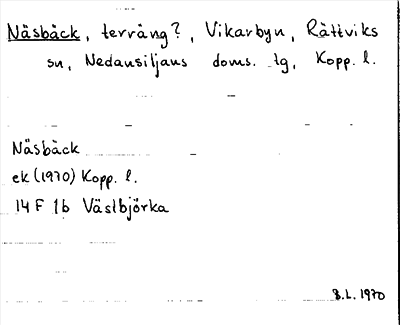 Näsbäck, terräng?, Vikarbyn, Rättviks
sn, Nedansiljans doms. tg, Kopp. l.
Näsbäck
ek (1970) Kopp. l.
14 F 1b Västbjörka
B.L. 1970